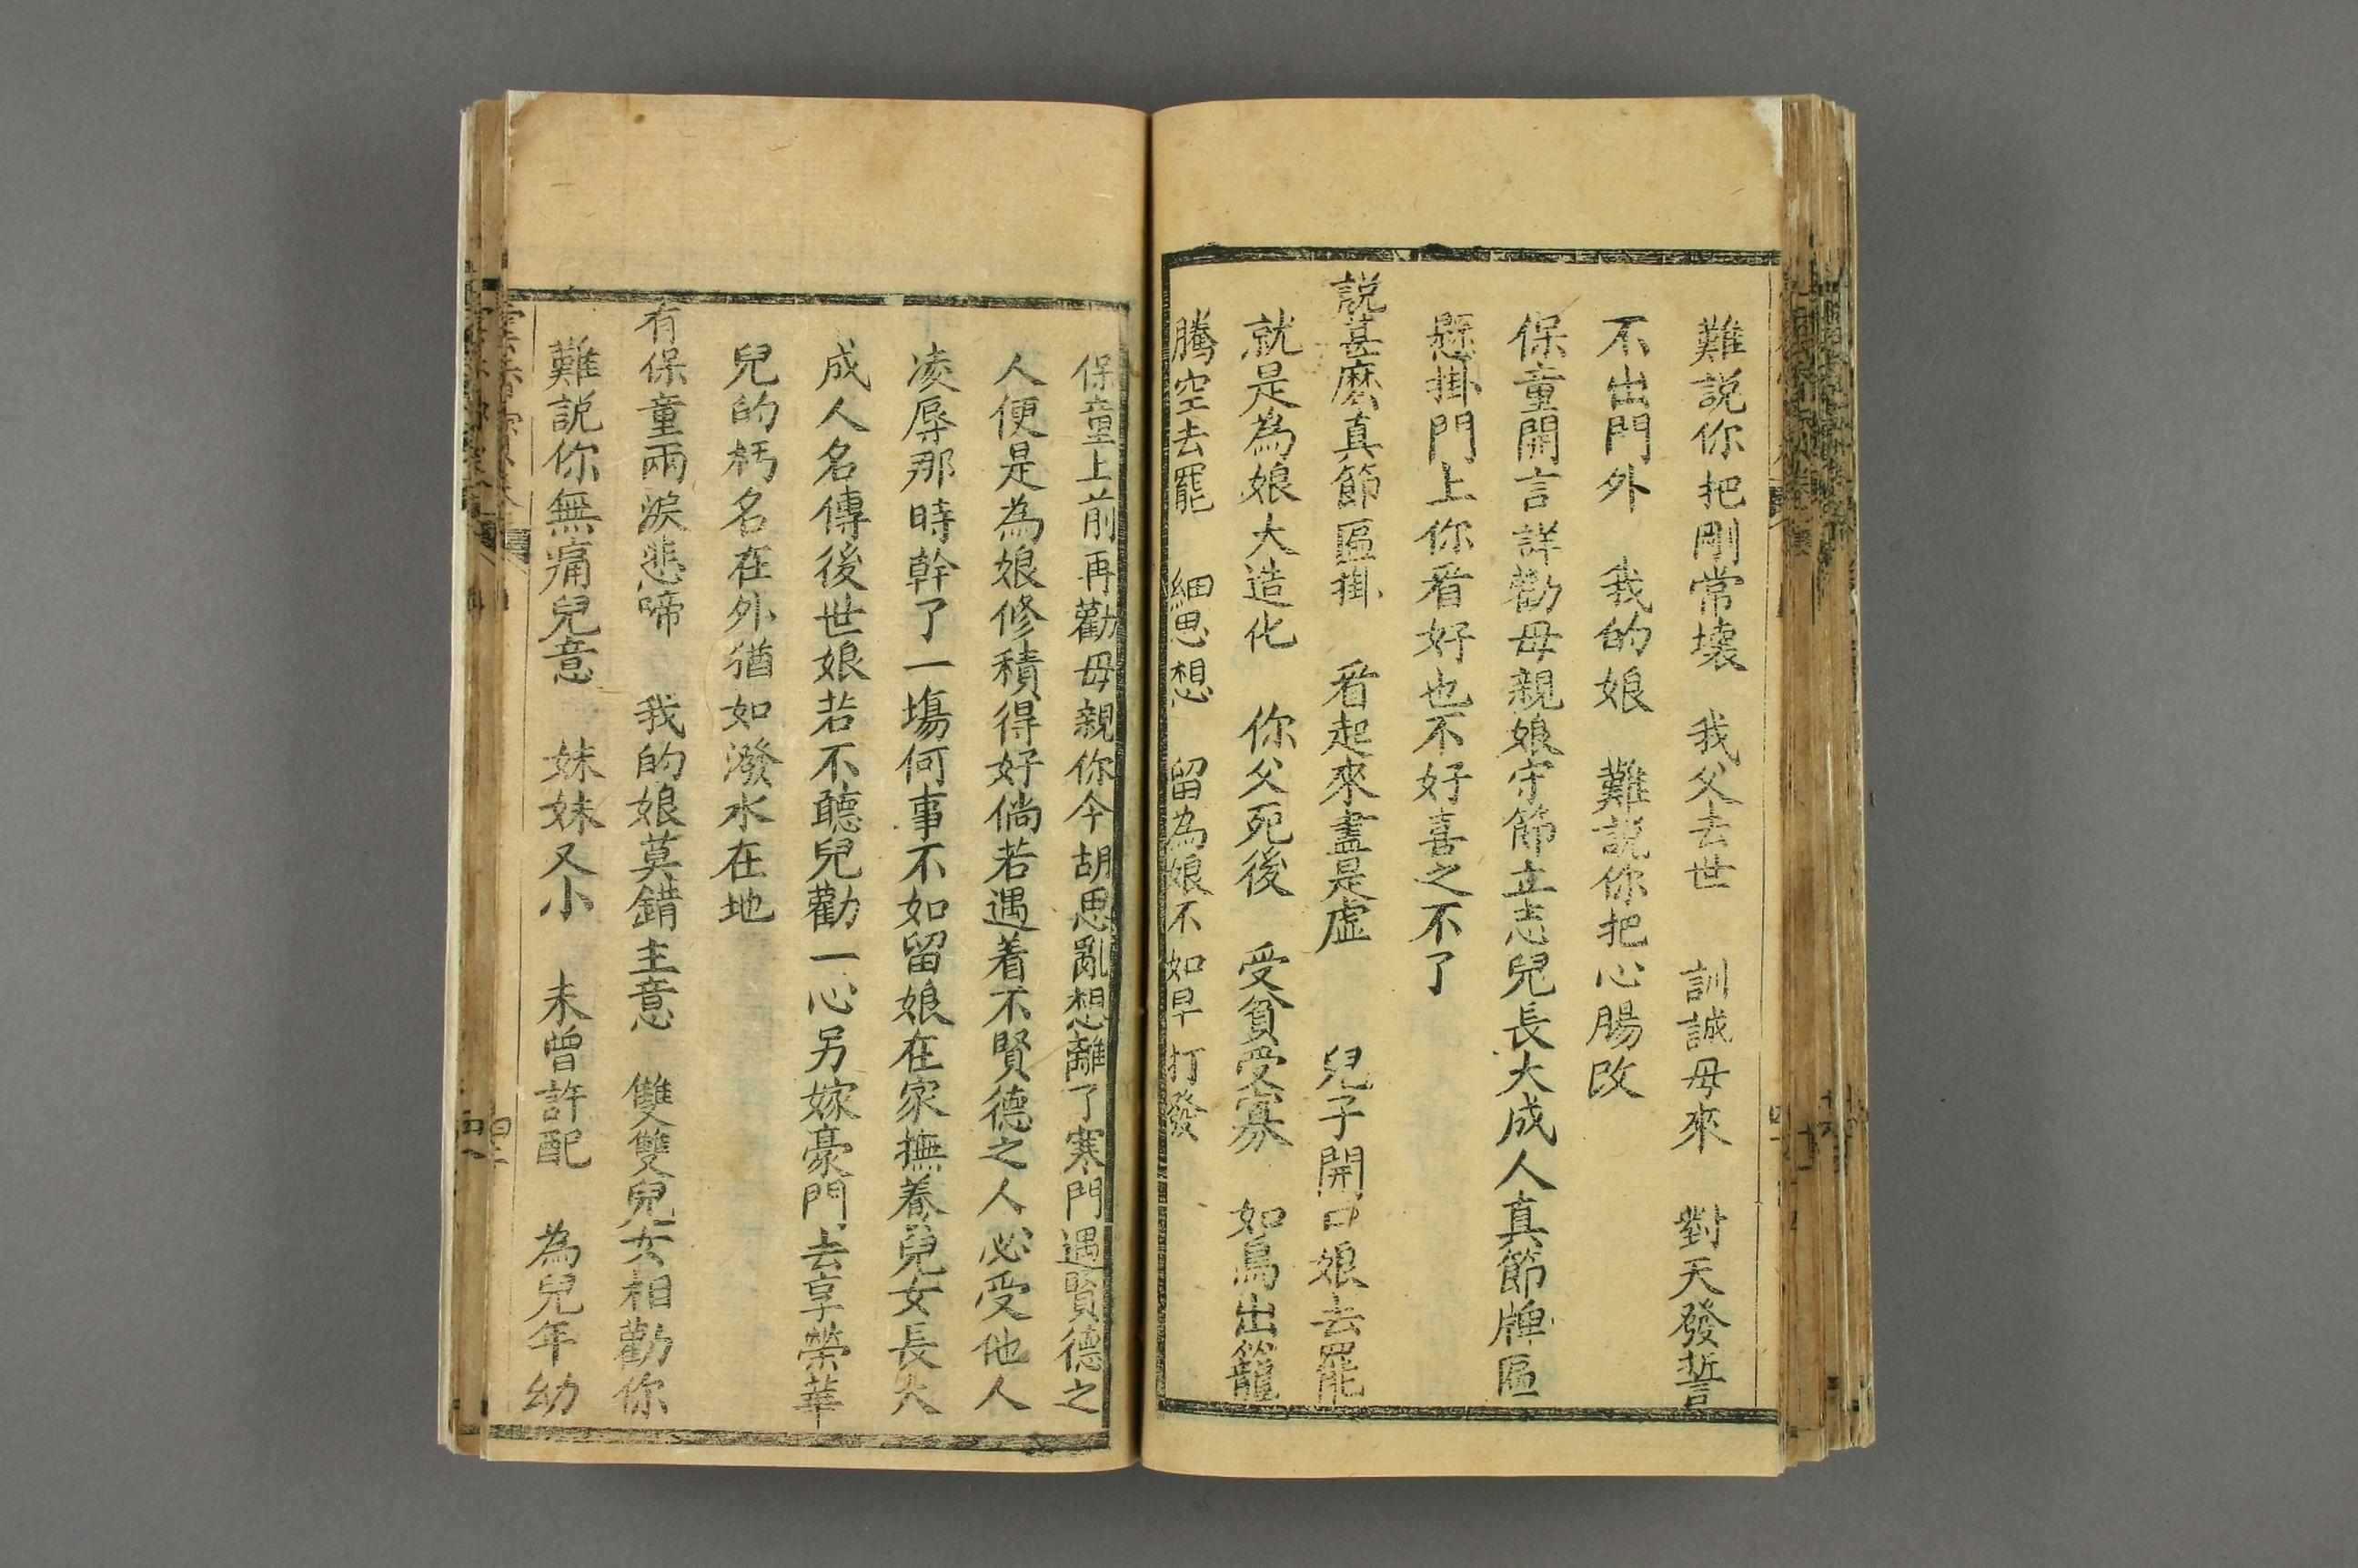 難説你把剛常壞　我父去世　訓誡母來　對天發誓
不出門外　我的娘　難説你把心腸改
保童開言詳勸母親娘守節立志兒長大成人真節牌匾
懸掛門上你看好也不好喜之不了
説甚麽真節匾掛　看起來盡是虛　兒子開口娘去罷
就是為娘大造化　你父死後　受貧受寡　如鳥出籠
騰空去罷　細思想　留為娘不如早打發
保童上前再勸母親你今胡思亂想離了寒門遇賢德之
人便是為娘修積得好倘若遇着不賢德之人必受他人
凌辱那時幹了一塲何事不如留娘在家撫養兒女長大
成人名傳後世娘若不聽兒勸一心另嫁豪門去享榮華
兒的朽名在外猶如潑水在地
有保童兩淚悲啼　我的娘莫錯主意　雙雙兒女相勸你
難説你無痛兒意　妹妹又小　未曾許配　為兒年幼